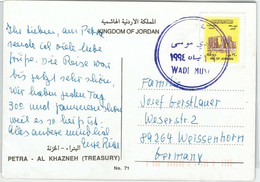 المملكة الأردنية الهاشمية
KINGDOM OF JORDAN
Ihr Lieben, aus Petra
sende ich viele liebe
Grüße. Die Reise war
bis jetzt sehr schön.
Wir haben jeden Tag
300 und
weil es so heiß ist.
Alles andere mündlich
Eure
وادي موسى
١٩٩٤
WADI MUSA
Familie
Josef Gerstlauer
Weserstr. 2
89264 Weissenhorn
Germany
البتراء - الخزنة
PETRA - AL KHAZNEH (TREASURY)
No. 71